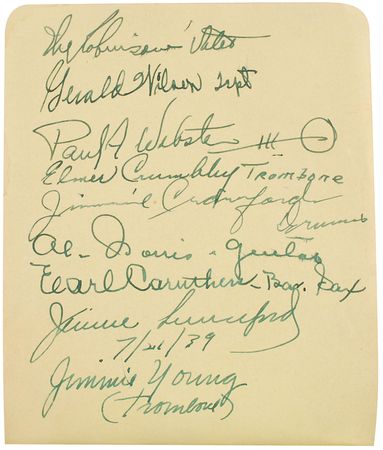 The
Gerald Wilson Trpt
Paul A Webster III
Elmer Crumbley Trombone
Jimmie Crawford
Drums
Al- Norris - guitar
Earl Caruthers - Bar. Sax
Jimmie Lunceford
7/21/39
Jimmie Young
(Trombone)